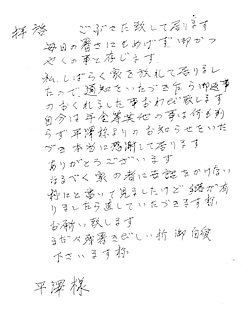 拝啓 ごぶさた致して居ります
毎日の暑さにもめげず御かつ
やくの事と存じます
私、しばらく家を放れて居りまし
たので、通知をいただき乍ら御返事
のおくれました事おわび致します
自分は年金等其他の事は何も判
らず平澤様よりのお知らせをいた
だき本当に感謝して居ります
ありがとうございます
なるべく家の者に世話をかけない
様にと書いて見ましたけど が有
りましたら直していただきます様
お願い致します
まだ 暑さきびしい折御自愛
下さいます様
平澤様